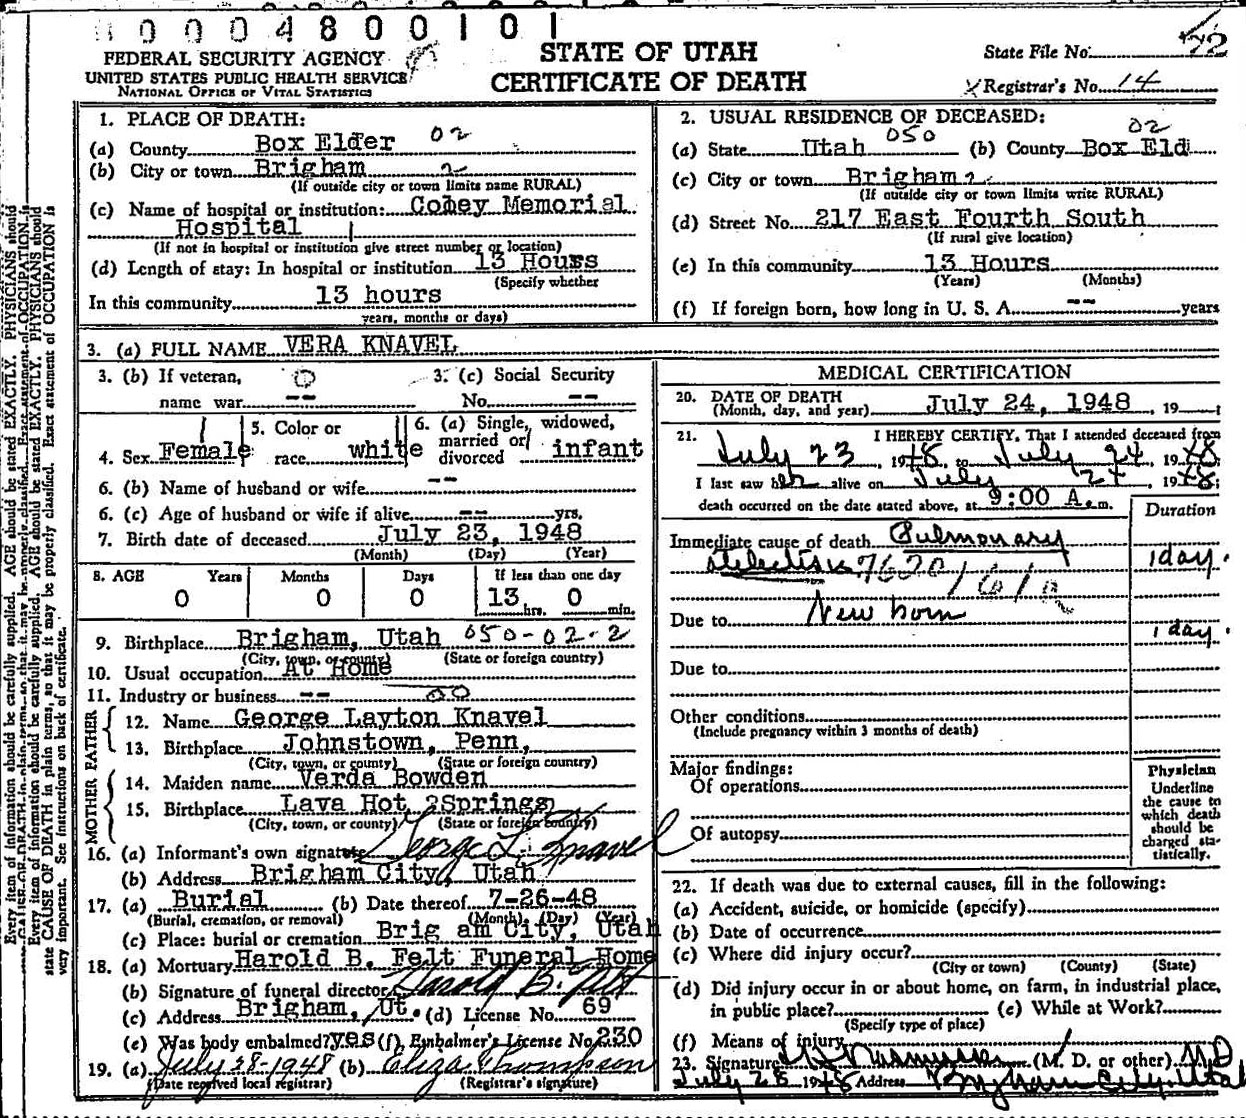 0004800101
FEDERAL SECURITY AGENCY
UNITED STATES PUBLIC HEALTH SERVICE
NATIONAL OFFICE OF VITAL STATISTICS
STATE OF UTAH
CERTIFICATE OF DEATH
State File No. 72
Registrar's No. 14
1. PLACE OF DEATH:
(a) County Box Elder 02
(b) City or town Brigham 2
(If outside city or town limits name RURAL)
(c) Name of hospital or institution: Cooey Memorial
Hospital
(If not in hospital or institution give street number or location)
(d) Length of stay: In hospital or institution 13 Hours
(Specify whether
In this community 13 hours
years, months or days)
2. USUAL RESIDENCE OF DECEASED:
(a) State Utah 050 (b) County Box Eld 02
(c) City or town Brigham 2
(If outside city or town limits write RURAL)
(d) Street No. 217 East Fourth South
(If rural give location)
(e) In this community 13 Hours
(Years) (Months)
(f) If foreign born, how long in U. S. A. -- years
3. (a) FULL NAME VERA KNAVEL
3. (b) If veteran, 0
name war --
3. (c) Social Security
No. --
4. Sex Female
5. Color or
race white
6. (a) Single, widowed,
married or
divorced infant
6. (b) Name of husband or wife --
6. (c) Age of husband or wife if alive -- yrs.
7. Birth date of deceased July 23, 1948
(Month) (Day) (Year)
8. AGE Years Months Days If less than one day
0 0 0 13 hrs. 0 min.
9. Birthplace Brigham, Utah 050-02-2
(City, town, or county) (State or foreign country)
10. Usual occupation At Home
11. Industry or business -- 00
FATHER
12. Name George Layton Knavel
13. Birthplace Johnstown, Penn,
(City, town, or county) (State or foreign country)
MOTHER
14. Maiden name Verda Bowden
15. Birthplace Lava Hot Springs
(City, town, or county) (State or foreign country)
16. (a) Informant's own signature George L. Knavel
(b) Address Brigham City, Utah
17. (a) Burial (b) Date thereof 7-26-48
(Burial, cremation, or removal) (Month) (Day) (Year)
(c) Place: burial or cremation Brig am City, Utah
18. (a) Mortuary Harold B. Felt Funeral Home
(b) Signature of funeral director Harold B. Felt
(c) Address Brigham, Ut. (d) License No. 69
(e) Was body embalmed? yes (f) Embalmer's License No. 230
19. (a) July 28-1948 (b) Eliza Thompson
(Date received local registrar) (Registrar's signature)
MEDICAL CERTIFICATION
20. DATE OF DEATH
(Month, day, and year) July 24, 1948, 19
21. I HEREBY CERTIFY, That I attended deceased from
July 23, 1948, to July 24, 1948
I last saw her alive on July 24, 1948;
death occurred on the date stated above, at 9:00 A. m.
Duration
Immediate cause of death Pulmonary
Atelectisis 7620 1 day.
Due to New born
1 day.
Due to
Other conditions
(Include pregnancy within 3 months of death)
Major findings:
Of operations
Of autopsy
Physician
Underline
the cause to
which death
should be
charged sta-
tistically.
22. If death was due to external causes, fill in the following:
(a) Accident, suicide, or homicide (specify)
(b) Date of occurrence
(c) Where did injury occur?
(City or town) (County) (State)
(d) Did injury occur in or about home, on farm, in industrial place,
in public place? (e) While at Work?
(Specify type of place)
(f) Means of injury
23. Signature Rasmussen (M. D. or other) M.D
July 28 1948 Address Brigham City, Utah
Every item of information should be carefully supplied. AGE should be stated EXACTLY. PHYSICIANS should
state CAUSE OF DEATH in plain terms, so that it may be properly classified. Exact statement of OCCUPATION is
very important. See instructions on back of certificate.